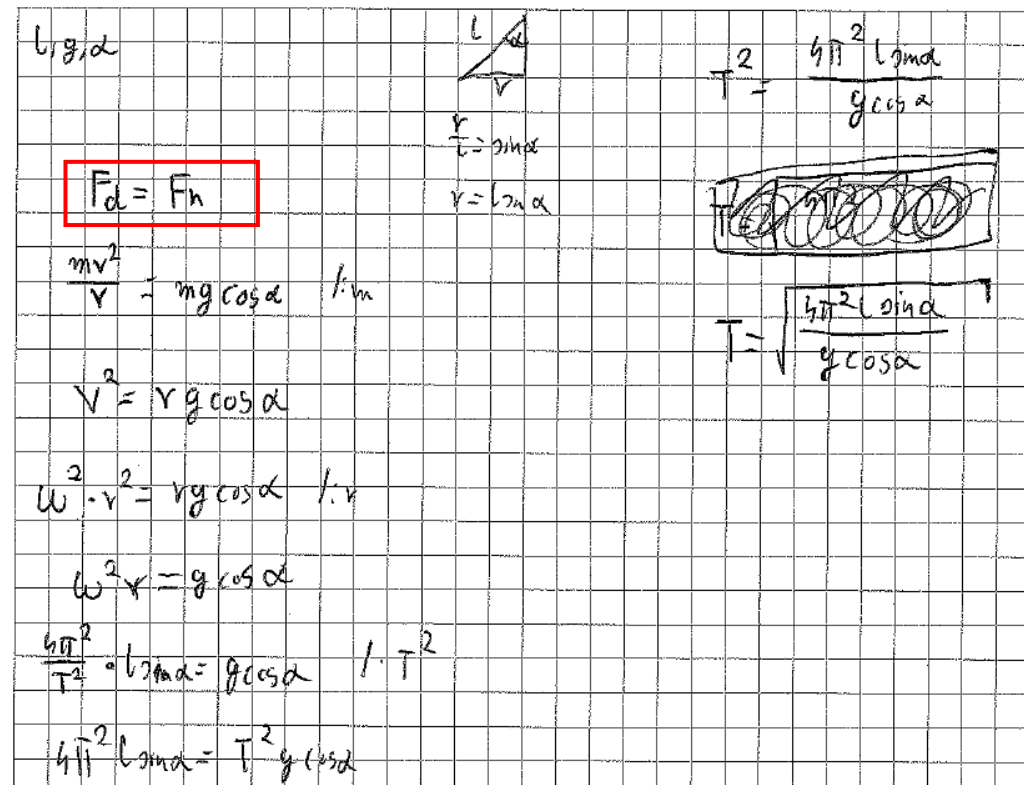 l, g, α
F_d = F_n
mv²/r = mg cos α /:m
v² = r g cos α
ω² · r² = r g cos α /:r
ω² r = g cos α
4π²/T² · l sin α = g cos α /· T²
4π² l sin α = T² g cos α
l α
r
r/l = sin α
r = l sin α
T² = 4π² l sin α / g cos α
T =
T = √(4π² l sin α / g cos α)